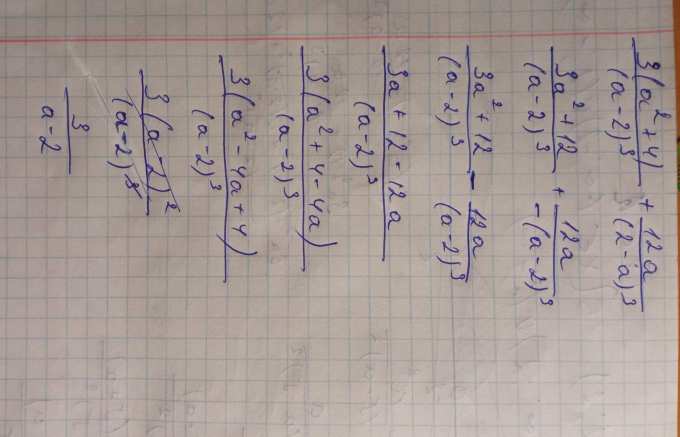 3(a²+4)/(a-2)³ + 12a/(2-a)³
3a²+12/(a-2)³ + 12a/-(a-2)³
3a²+12/(a-2)³ - 12a/(a-2)³
3a+12-12a/(a-2)³
3(a²+4-4a)/(a-2)³
3(a²-4a+4)/(a-2)³
3(a-2)²/(a-2)³
3/a-2